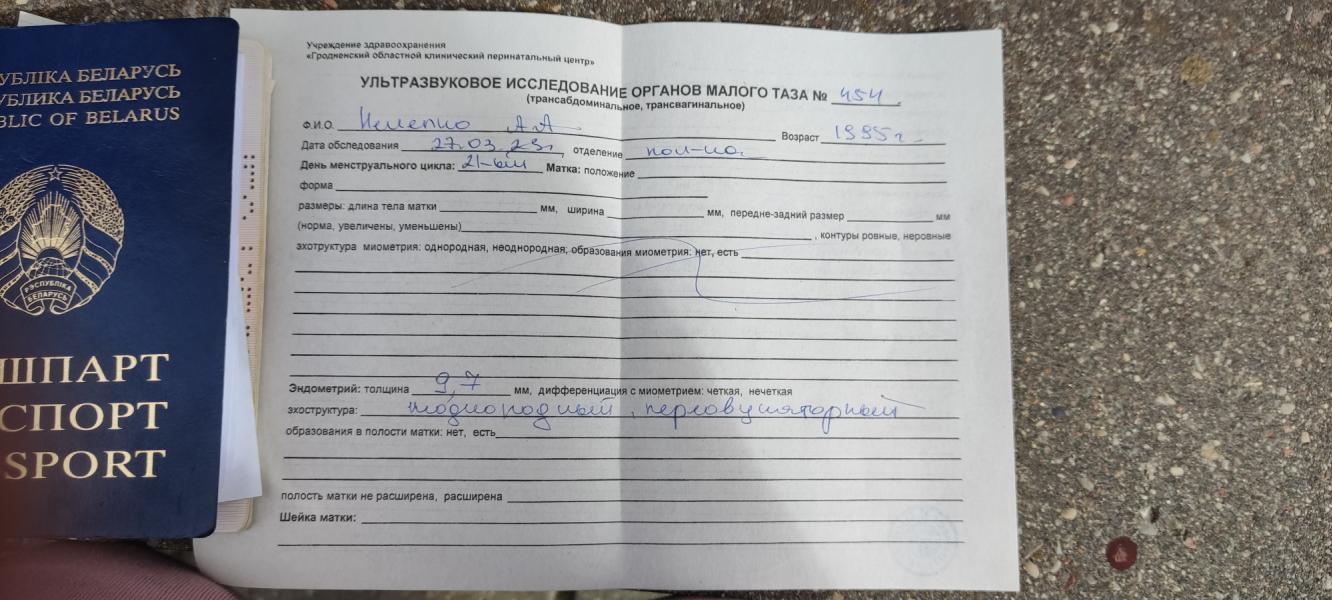 УБЛІКА БЕЛАРУСЬ
УБЛИКА БЕЛАРУСЬ
BLIC OF BELARUS
РЭСПУБЛІКА
БЕЛАРУСЬ
ШПАРТ
СПОРТ
SPORT
Учреждение здравоохранения
«Гродненский областной клинический перинатальный центр»
УЛЬТРАЗВУКОВОЕ ИССЛЕДОВАНИЕ ОРГАНОВ МАЛОГО ТАЗА № 454
(трансабдоминальное, трансвагинальное)
Ф.И.О. А.А Возраст 1995 г.
Дата обследования 27.03.23г. отделение пол-ка.
День менструального цикла: 21-ый Матка: положение
форма
размеры: длина тела матки мм, ширина мм, передне-задний размер мм
(норма, увеличены, уменьшены) , контуры ровные, неровные
эхотруктура миометрия: однородная, неоднородная; образования миометрия: нет, есть
Эндометрий: толщина 9,7 мм, дифференциация с миометрием: четкая, нечеткая
эхоструктура: периовуляторный
образования в полости матки: нет, есть
полость матки не расширена, расширена
Шейка матки: